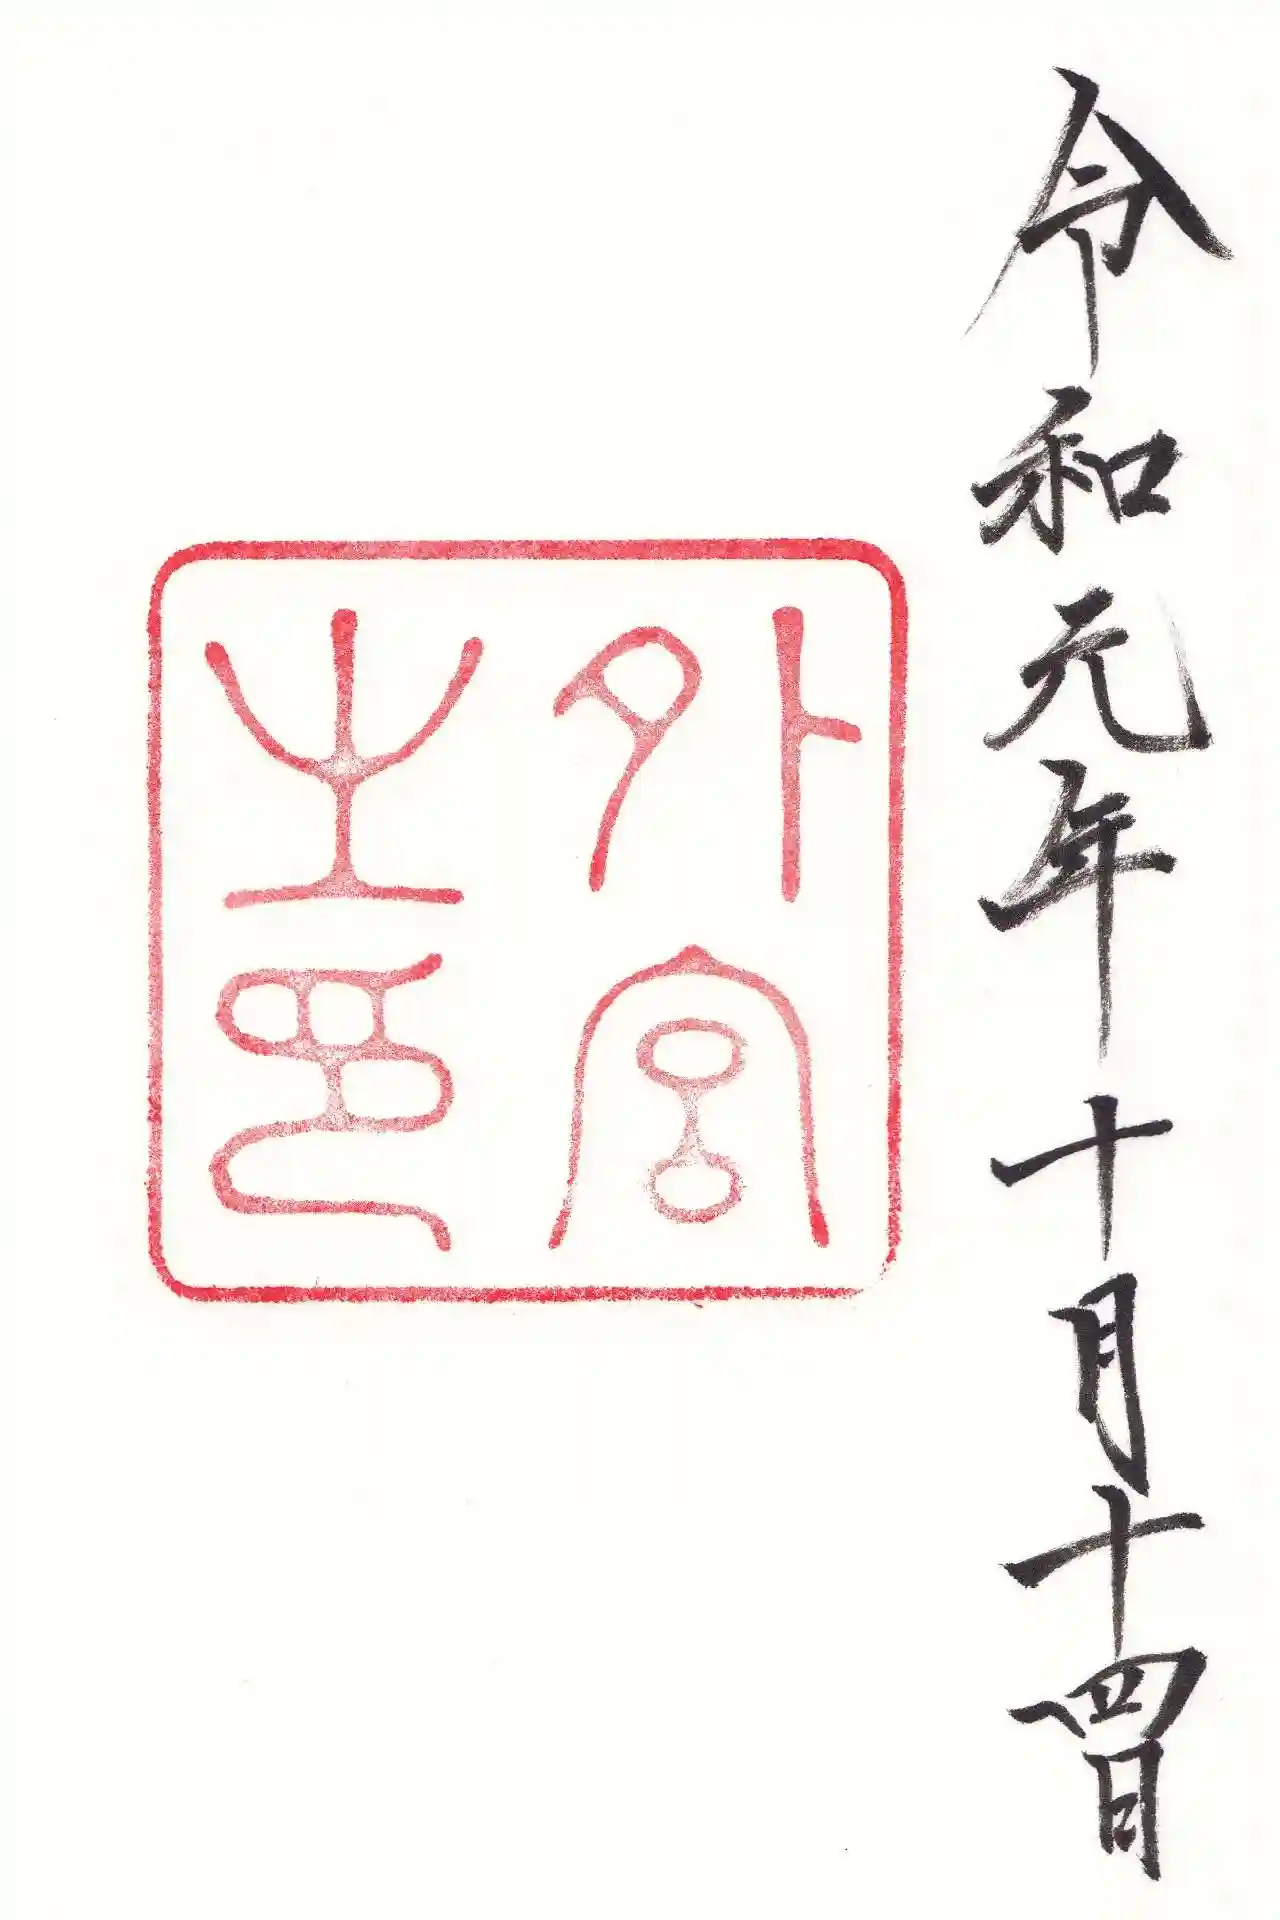 令和元年十月十四日
外宮
之印